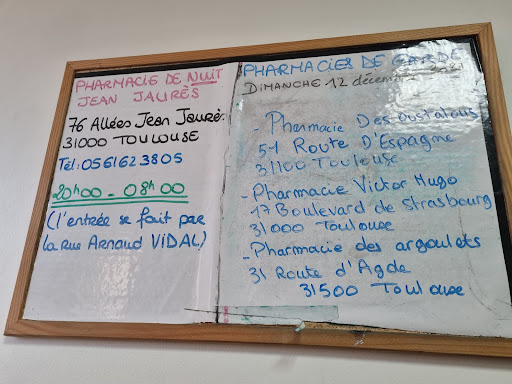 PHARMACIE DE NUIT
JEAN JAURÈS
76 Allées Jean Jaurès
31000 TOULOUSE
Tél: 0561623805
20h00 - 08h00
(l'entrée se fait par
la Rue Arnaud VIDAL)
PHARMACIES DE GARDE
DIMANCHE 12 décembre
- Pharmacie Des Oustalous
51 Route D'Espagne
31100 Toulouse
- Pharmacie Victor Hugo
17 Boulevard de Strasbourg
31000 Toulouse
- Pharmacie des argoulets
31 Route d'Agde
31500 Toulouse